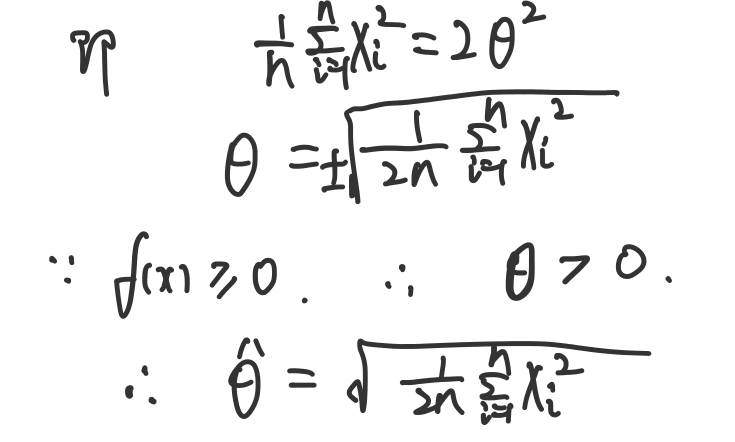 η 1/n ∑_{i=1}^{n} X_i^2 = 2θ^2
θ = ±√(1/2n ∑_{i=1}^{n} X_i^2)
∵ f(x) ≥ 0. ∴ θ > 0.
∴ θ̂ = √(1/2n ∑_{i=1}^{n} X_i^2)